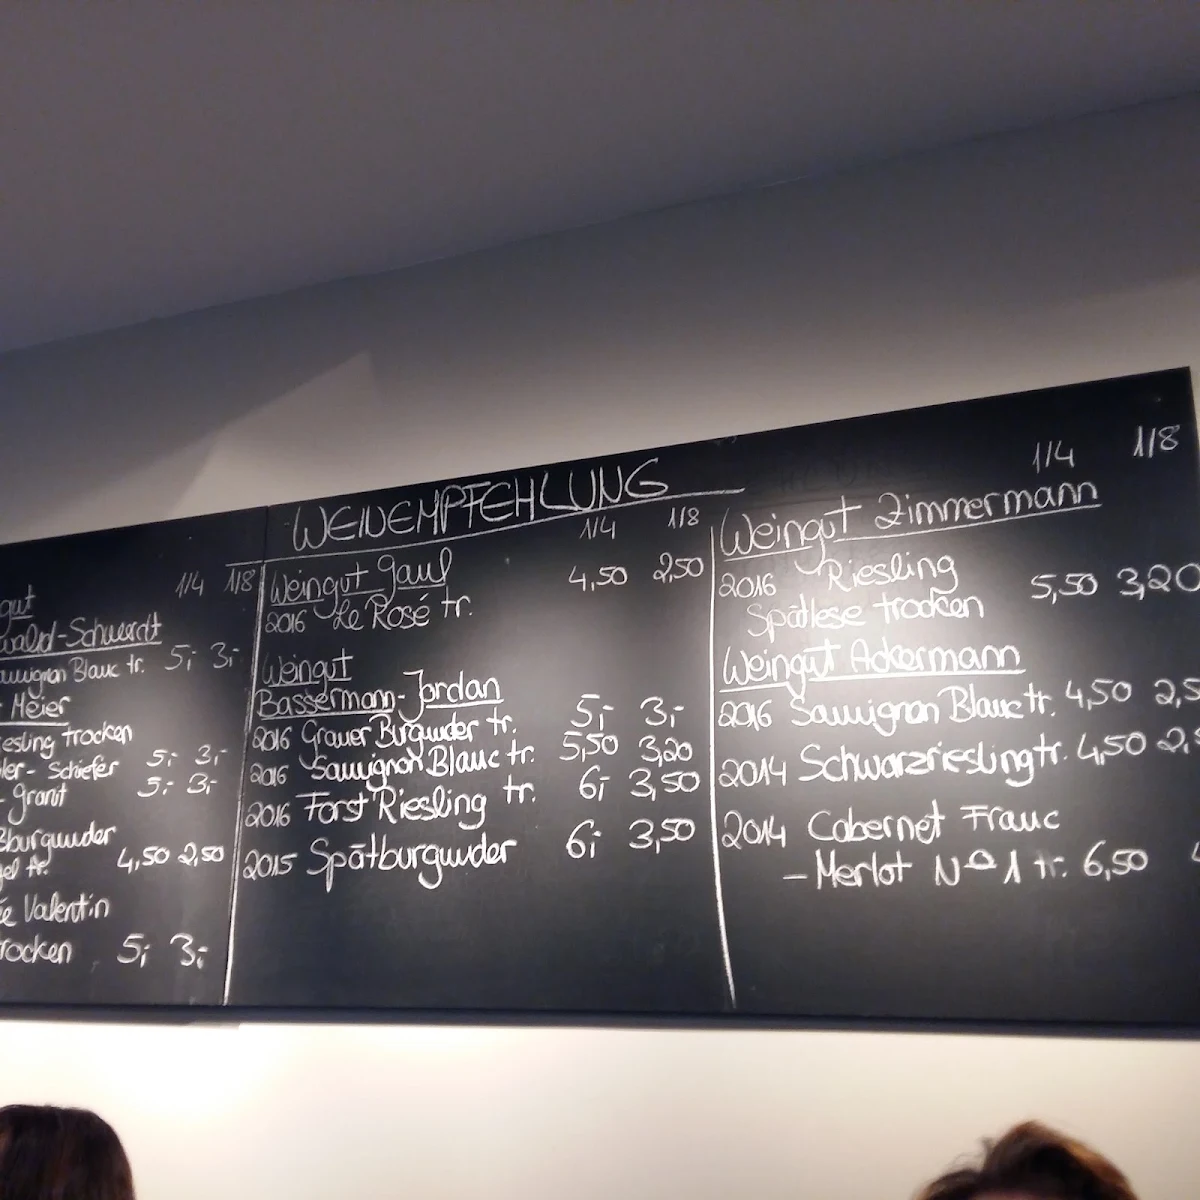 WEINEMPFEHLUNG
1/4 1/8
gut
wald-Schwerdt
Sauvignon Blanc tr. 5,- 3,-
Meier
Riesling trocken
Schiefer 5,- 3,-
- Granit 5,- 3,-
burgunder
tr. 4,50 2,50
Valentin
trocken 5,- 3,-
1/4 1/8
Weingut Gaul 4,50 2,50
2016 Le Rosé tr.
Weingut
Bassermann-Jordan
2016 Grauer Burgunder tr. 5,- 3,-
2016 Sauvignon Blanc tr. 5,50 3,20
2016 Forst Riesling tr. 6,- 3,50
2015 Spätburgunder 6,- 3,50
1/4 1/8
Weingut Zimmermann
2016 Riesling 5,50 3,20
Spätlese trocken
Weingut Ackermann
2016 Sauvignon Blanc tr. 4,50 2,5
2014 Schwarzriesling tr. 4,50 2,5
2014 Cabernet Franc
- Merlot Nº 1 tr. 6,50